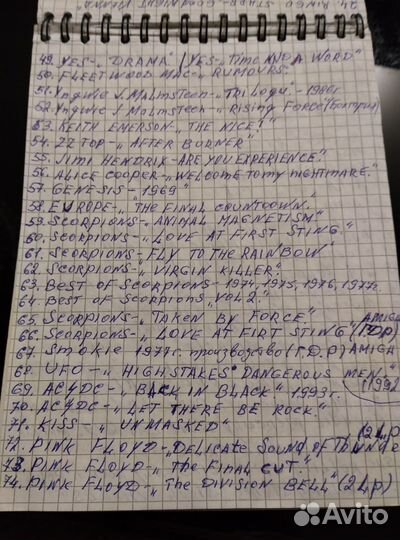 24. RINGO STARR-
49. YES-„DRAMA" / YES-„TIME AND A WORD"
50. FLEETWOOD MAC-„RUMOURS".
51. Yngwie J. Malmsteen-„TRILOGY.-1986г
52. Yngwie J. Malmsteen-„Rising Force" (Болгария)
53. KEITH EMERSON-„THE NICE!"
54. ZZ TOP-„AFTER BURNER"
55. JIMI HENDRIX-ARE YOU EXPERIENCE."
56. ALICE COOPER-„WELCOME TO MY NIGHTMARE."
57. GENESIS-1969"
58. EUROPE-„THE FINAL COUNTDOWN."
59. SCORPIONS-„ANIMAL MAGNETISM"
60. SCORPIONS-„LOVE AT FIRST STING."
61. SCORPIONS-FLY TO THE RAINBOW"
62. SCORPIONS-„VIRGIN KILLER."
63. BEST OF SCORPIONS-1974, 1975, 1976, 1977г.
64. BEST OF SCORPIONS VOL 2."
65. SCORPIONS-„TAKEN BY FORCE." AMIGA
66. SCORPIONS-„LOVE AT FIRT STING" (ГДР)
67. SMOKIE 1977г. производство (Г.Д.Р) AMIGA
68. UFO-„HIGH STAKES DANGEROUS MEN-" (1992
69. AC/DC-„BACK IN BLACK." 1993г.
70. AC/DC-„LET THERE BE ROCK."
71. KISS-„UNMASKED" (2Lp)
72. PINK FLOYD-„DELICATE SOUND OF THUNDE
73. PINK FLOYD-„THE FINAL CUT."
74. PINK FLOYD-„THE DIVISION BELL" (2Lp)
Avito